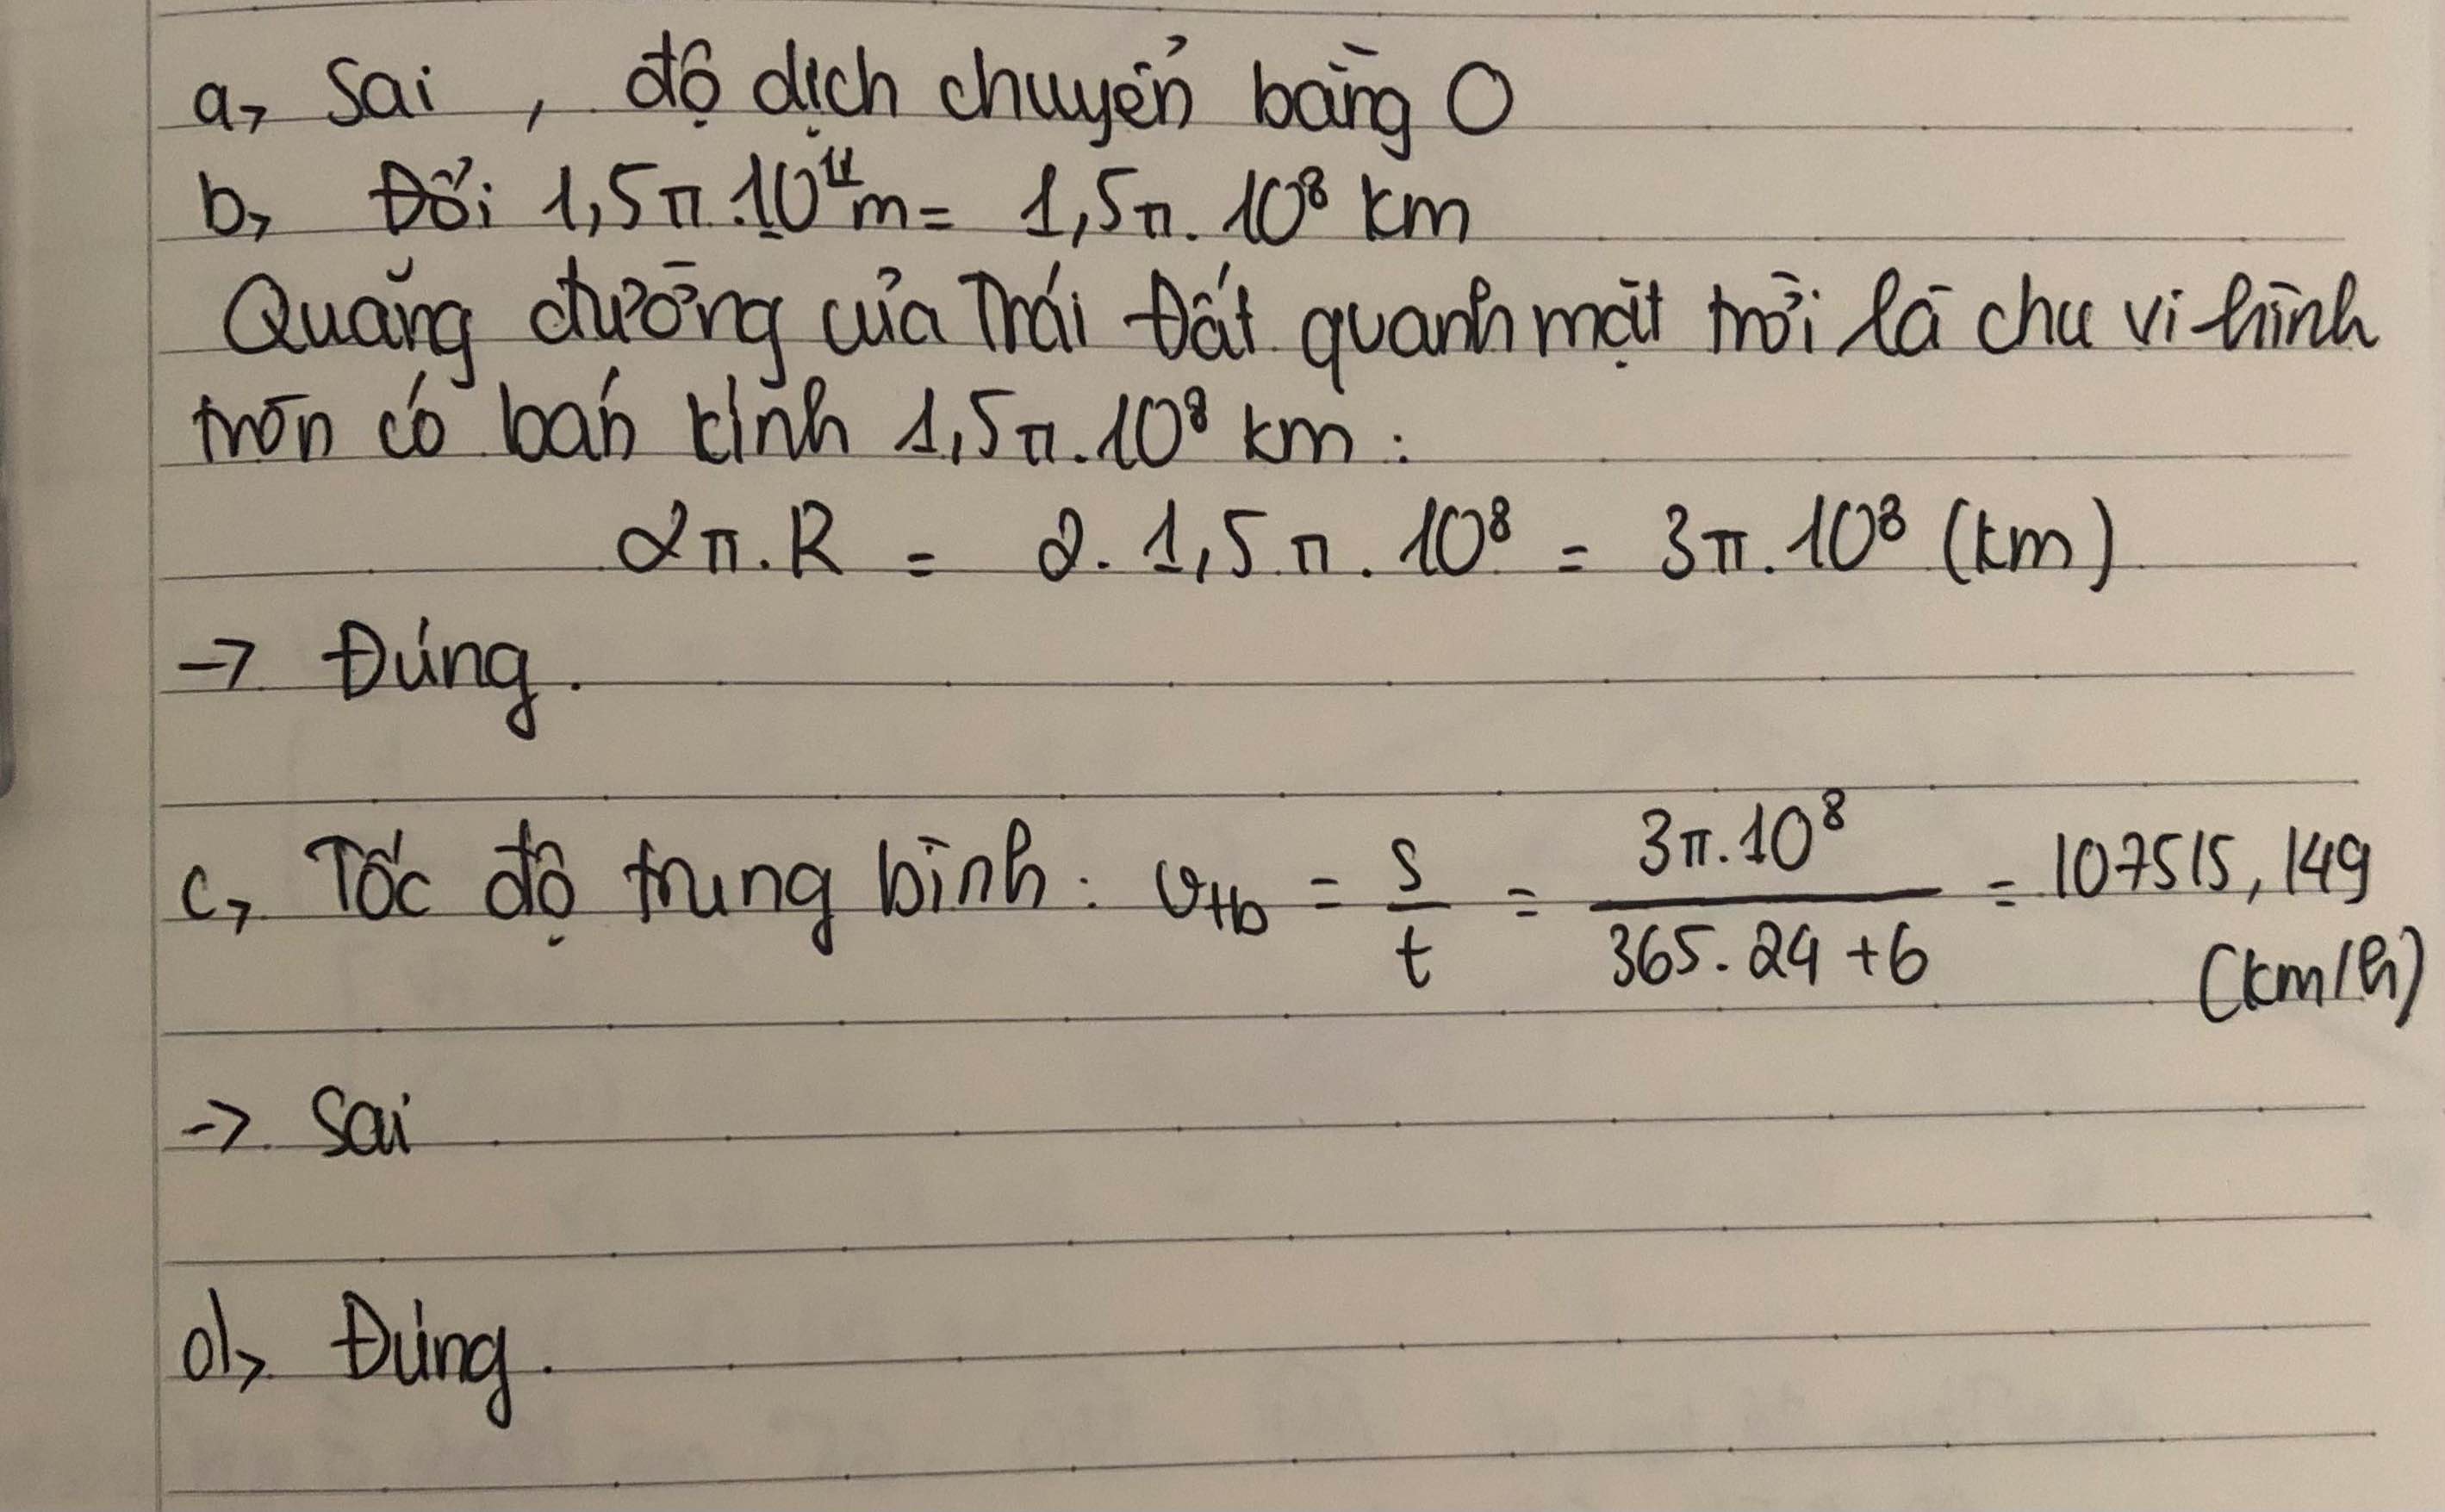 a, Sai, độ dịch chuyển bằng 0
b, Đổi 1,5π.10¹¹m = 1,5π.10⁸ km
Quãng đường của Trái Đất quanh mặt trời là chu vi hình
tròn có bán kính 1,5π.10⁸ km:
2π.R = 2.1,5π.10⁸ = 3π.10⁸ (km)
→ Đúng.
c, Tốc độ trung bình: vtb = s/t = 3π.10⁸/(365.24+6) = 107515,149
(km/h)
→ Sai
d, Đúng.